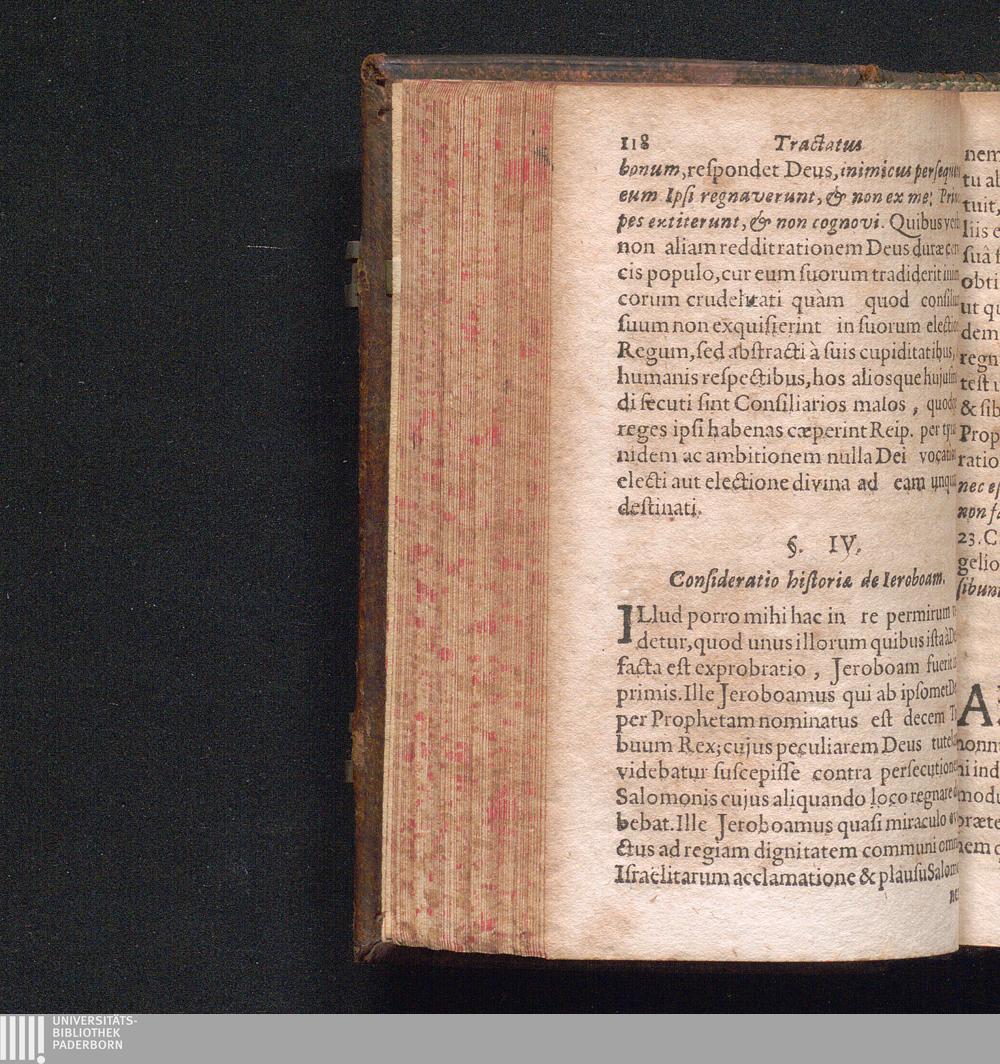 118 Tractatus
bonum, reſpondet Deus, inimicus
eum Ipſi regnaverunt, & non ex me;
pes extiterunt, & non cognovi. Quibus
non aliam reddit rationem Deus duræ
cis populo, cur eum ſuorum tradiderit
corum crudelitati quàm quod
ſuum non exquiſierint in ſuorum
Regum, ſed abſtracti à ſuis cupiditatibus,
humanis reſpectibus, hos aliosque
di ſecuti ſint Conſiliarios malos,
reges ipſi habenas cæperint Reip. per
nidem ac ambitionem nulla Dei
electi aut electione divina ad eam
deſtinati.
§. IV.
Conſideratio hiſtoriæ de Ieroboam.
ILlud porro mihi hac in re permirum
detur, quod unus illorum quibus iſta à
facta eſt exprobratio, Jeroboam
primis. Ille Jeroboamus qui ab ipſomet
per Prophetam nominatus eſt decem
buum Rex; cujus peculiarem Deus
videbatur ſuſcepiſſe contra
Salomonis cujus aliquando loco regnare
bebat. Ille Jeroboamus quaſi miraculo
ctus ad regiam dignitatem communi
Iſraëlitarum acclamatione & plauſu
nem
tuit,
dem
Prop
ratio
nec
23. C
gelio
UNIVERSITÄTS-
BIBLIOTHEK
PADERBORN